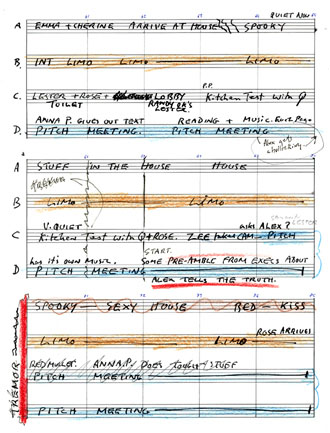 QUIET NOW
A. EMMA + CHERINE ARRIVE AT HOUSE SPOOKY
B. INT LIMO LIMO LIMO
C. LESTER + ROSE + LOBBY Kitchen Test with
TOILET RANDY LESTER.
ANNA P. GIVES OUT TEXT READING + MUSIC.
D. PITCH MEETING. PITCH MEETING
A STUFF IN THE HOUSE HOUSE
B LIMO LIMO
V. QUIET asks ALEX?
C Kitchen Test with + ROSE. ZEE takes CAM PITCH
START.
has its own MUSIC. SOME PRE-AMBLE FROM EXECS ABOUT
D PITCH MEETING
ALEX TELLS THE TRUTH.
SPOOKY SEXY HOUSE RED KISS
LIMO LIMO ROSE ARRIVES
ANNA.P. DOES STUFF
PITCH MEETING
TREMOR
PITCH MEETING